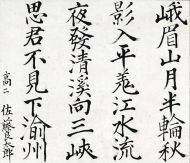 峨眉山月半輪秋
影入平羌江水流
夜發清溪向三峽
思君不見下渝州
高二 佐藤良太郎